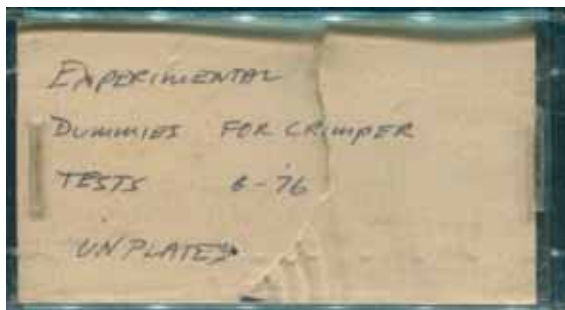 EXPERIMENTAL
DUMMIES FOR CRIMPER
TESTS 6-76
UNPLATED